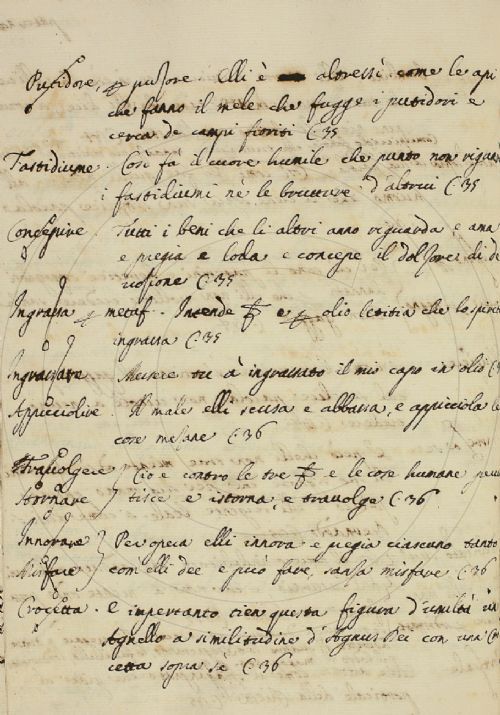 Putidore, puzore. Elli è altressì come le api
che fanno il mele che fugge i putidori e
cerca de campi fioriti C. 35
Fastidiume. Così fà il cuore humile che punto non riguarda
i fastidiumi nè le brutture d'altrui C. 35
Concepire. Tutti i beni che li altri anno riguarda e ama
e piegia e loda e concepe il dolzore di de
vosione C. 35
Ingrassa metaf. Intende e olio letitia che lo spirit
ingrassa C. 35
Ingrassare. Misere tu à ingrassato il mio capo in olio
Appicciolire. Il male elli scusa e abbassa, e appicciola le
cose mesane C. 36
Stravolgere Cio e contro le tre e le cose humane
Stornare tisce e istorna, e stravolge C. 36
Innorare Per opera elli innora e piegia ciascuno tanto
Misfare com elli dee e può fare, sansa misfare C. 36
Crocetta. E impertanto tien questa figura d'umiltà un
Agnello a similitudine d'Agnus Dei con una
cetta sopra sè C. 36